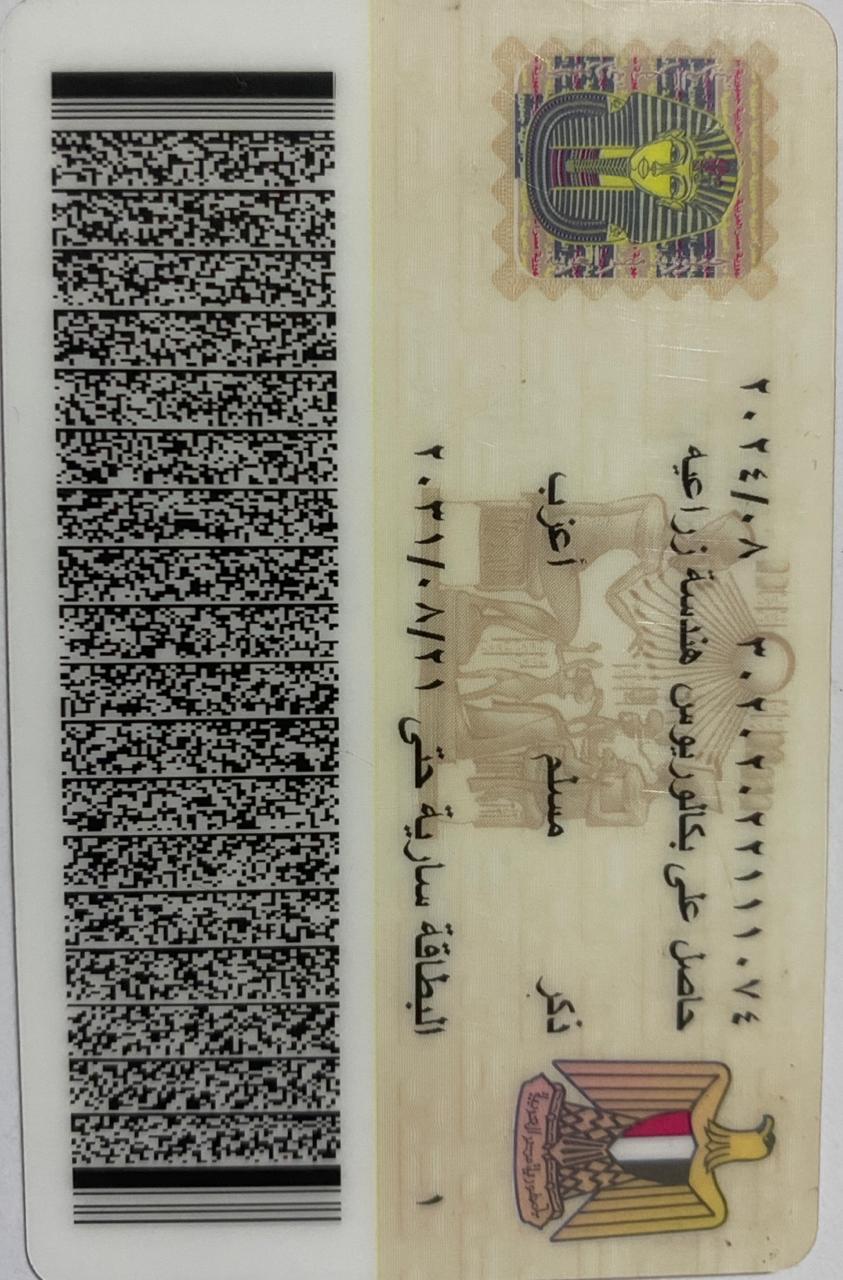 ٣٠٢٠٢٠٢٢١١١٠٧٤ ٢٠٢٤/٠٨
حاصل على بكالوريوس هندسة زراعيه
ذكر مسلم أعزب
البطاقة سارية حتى ٢٠٣١/٠٨/٢١
١
جمهورية مصر العربية